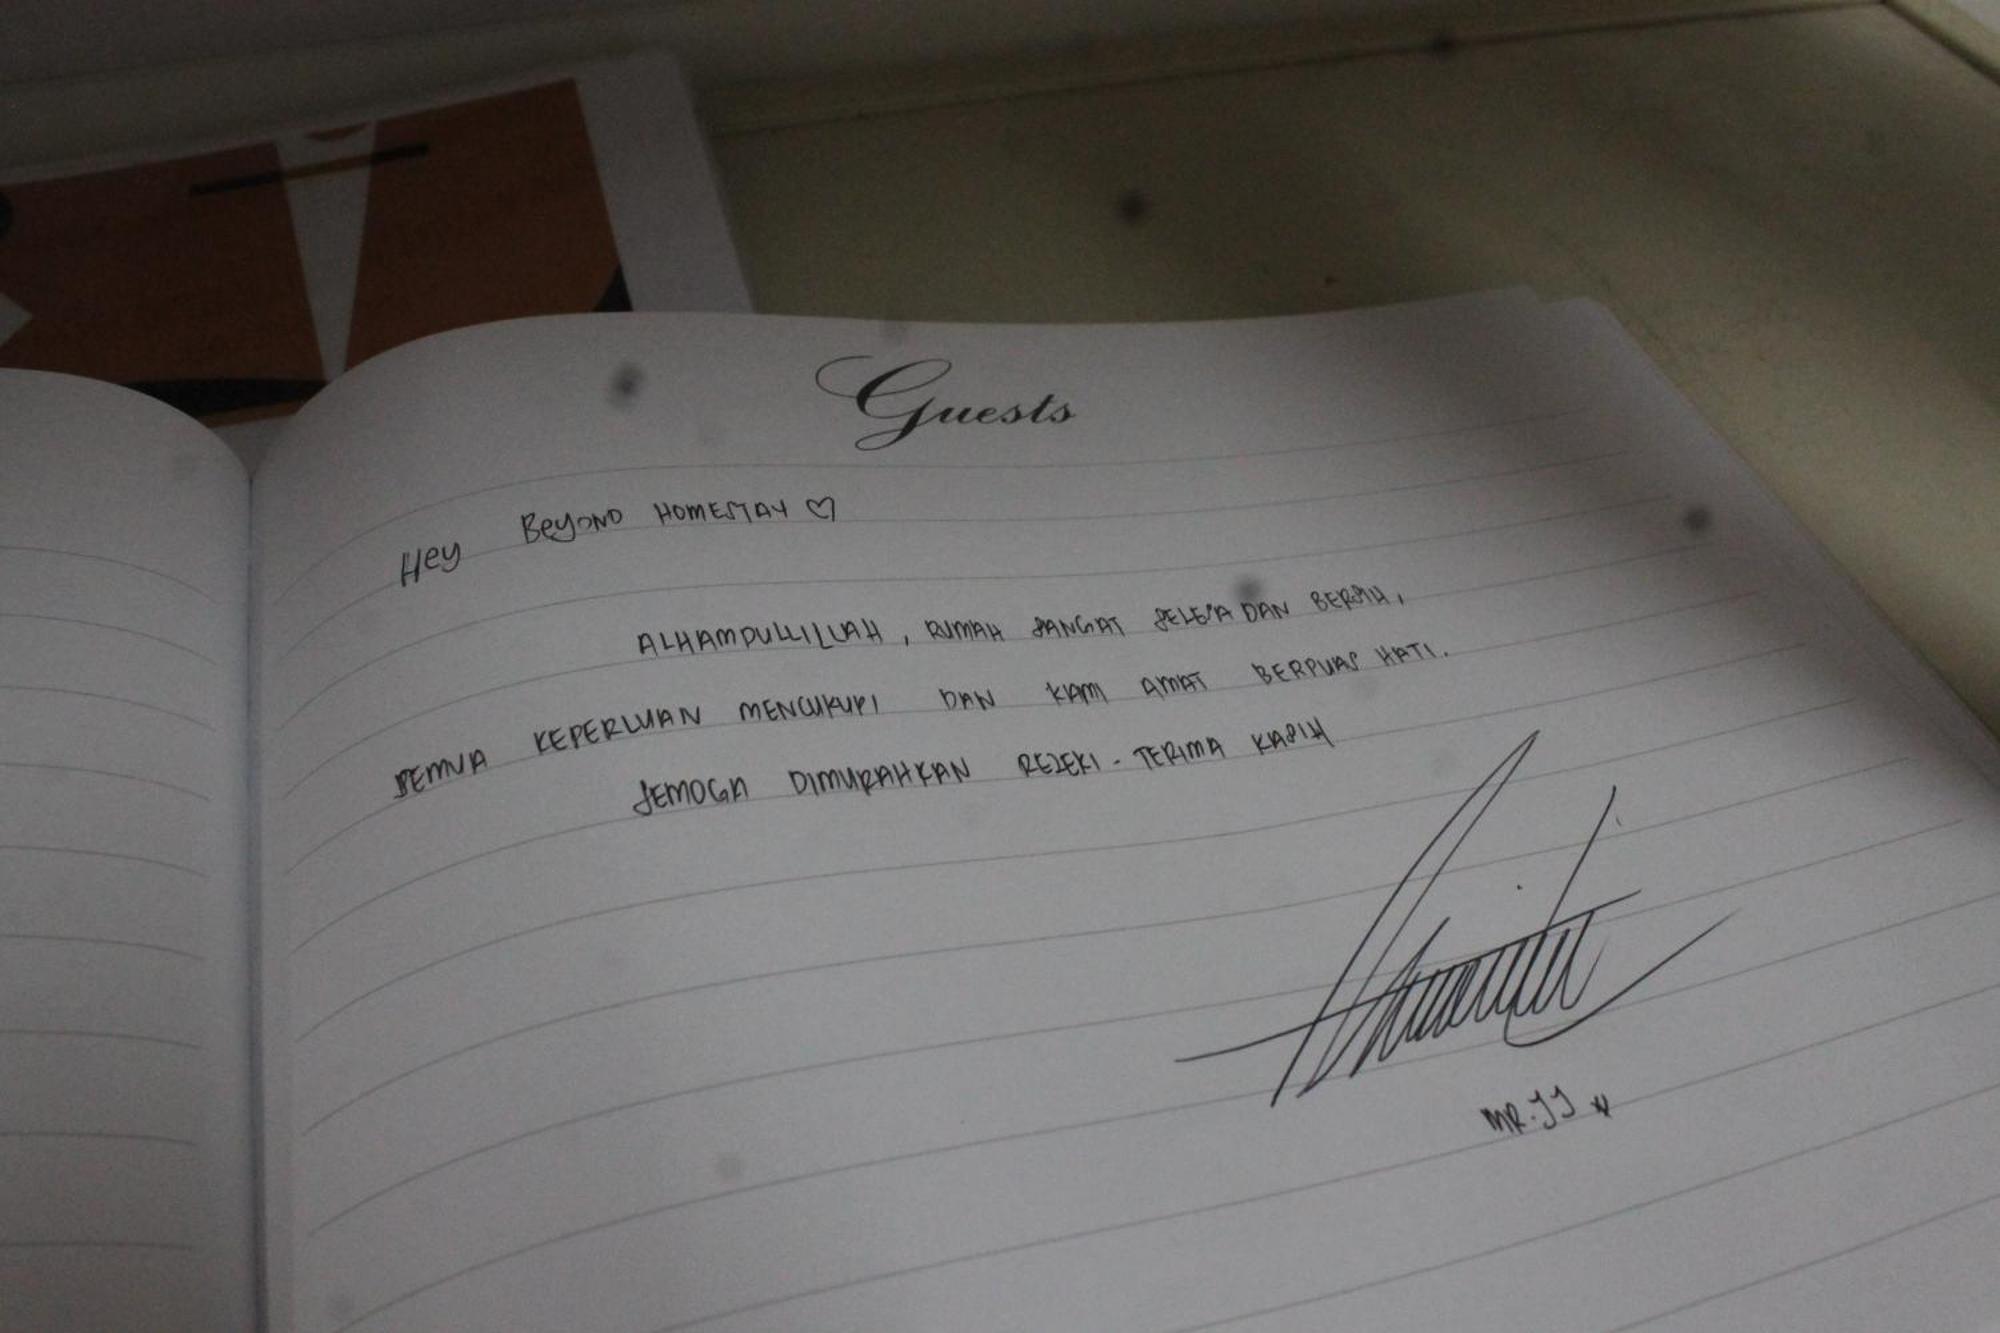 Guests
Hey BeyOND HOMESTAY ♡
ALHAMDULLILLAH, RUMAH SANGAT SELESA DAN BERSIH,
SEMUA KEPERLUAN MENCUKUPI DAN KAMI AMAT BERPUAS HATI.
SEMOGA DIMURAHKAN REZEKI - TERIMA KASIH
MR. JJ